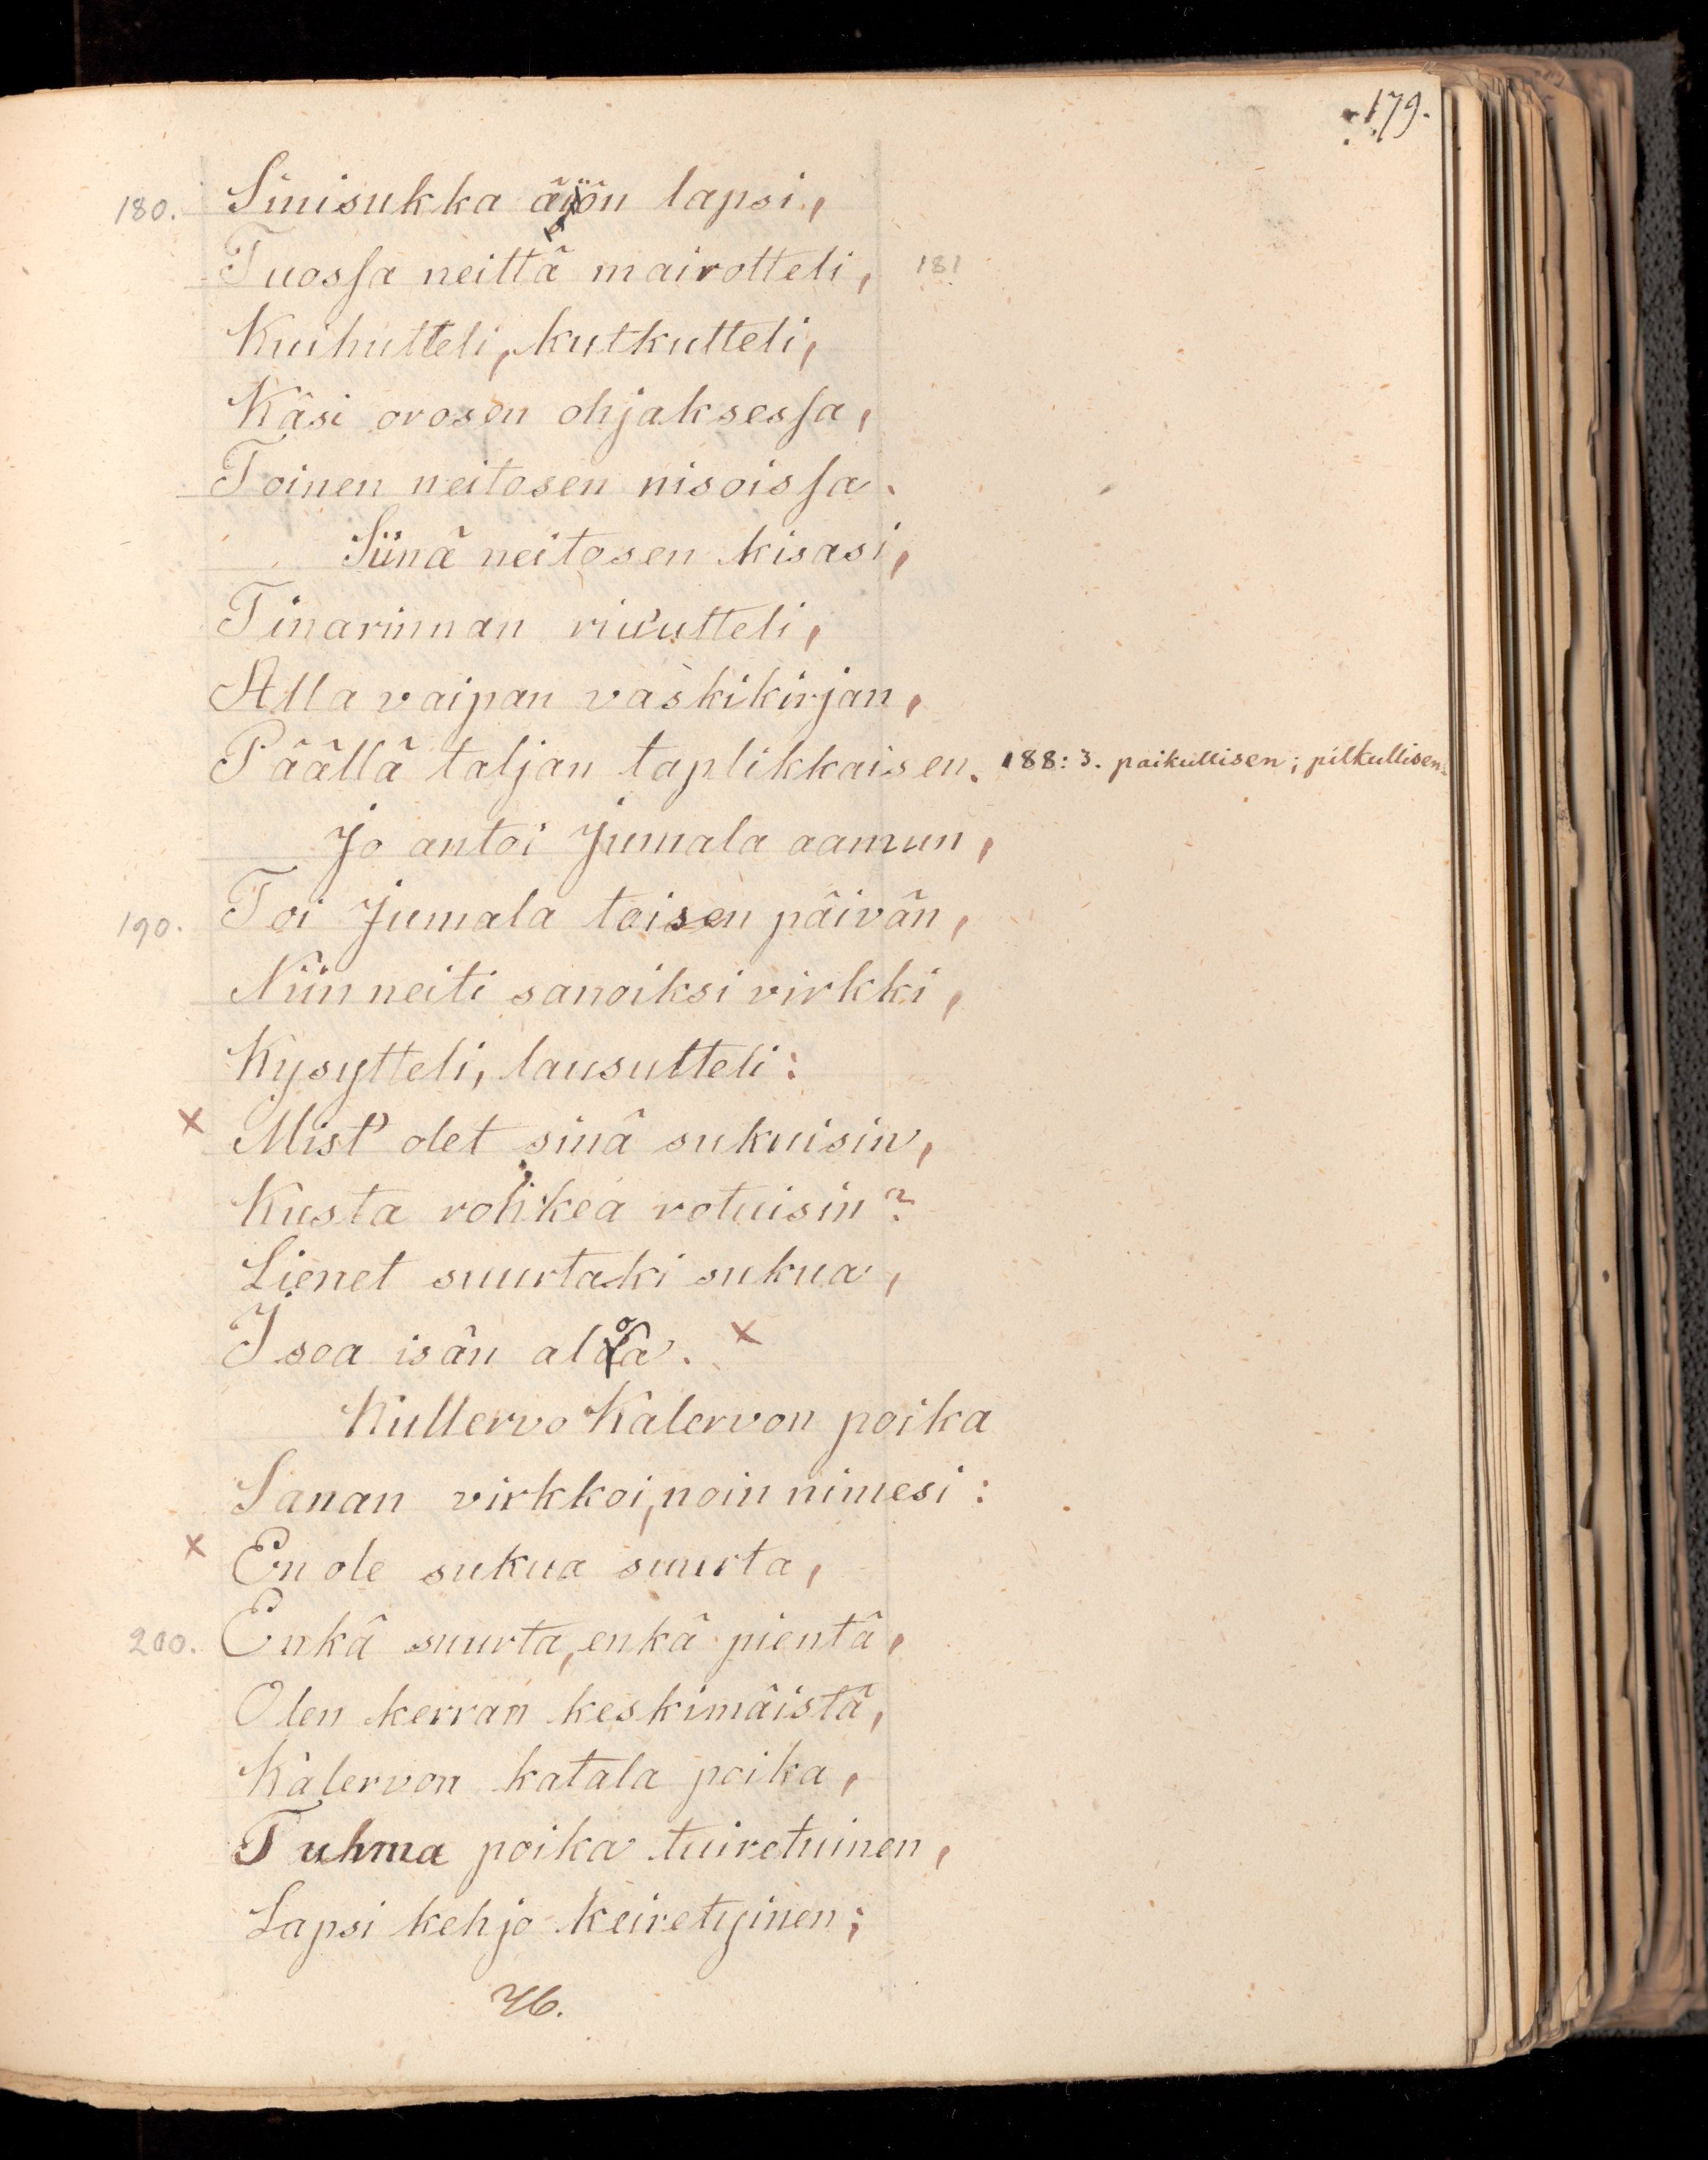 179.
180. Sinisukka äiön lapsi,
Tuossa neittä mairotteli, 181
Kuihutteli, kutkutteli,
Käsi orosen ohjaksessa,
Toinen neitosen nisoissa.
Siinä neitosen kisasi,
Tinarinnan riu'utteli,
Alla vaipan vaskikirjan,
Päällä taljan taplikkaisen. 188: 3. paikullisen; pilkullisen.
Jo antoi Jumala aamun,
190. Toi Jumala toisen päivän,
Niin neiti sanoiksi virkki,
Kysytteli, lausutteli:
x Mist' olet sinä sukuisin,
Kusta rohkea rotuisin?
Lienet suurtaki sukua,
Isoa isän aloa. x
Kullervo Kalervon poika
Sanan virkkoi, noin nimesi:
x En ole sukua suurta,
200. Enkä suurta, enkä pientä,
Olen kerran keskimäistä,
Kalervon katala poika,
Tuhma poika tuiretuinen,
Lapsi kehjo keiretyinen;
46.